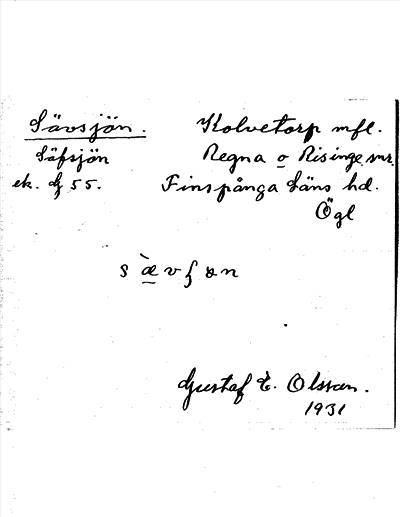 Sävsjön.
Säfsjön
ek. bl 55.
Kolvetorp mfl.
Regna o Risinge snr.
Finspånga läns hd.
Ögl
Gustaf E. Olsson.
1931